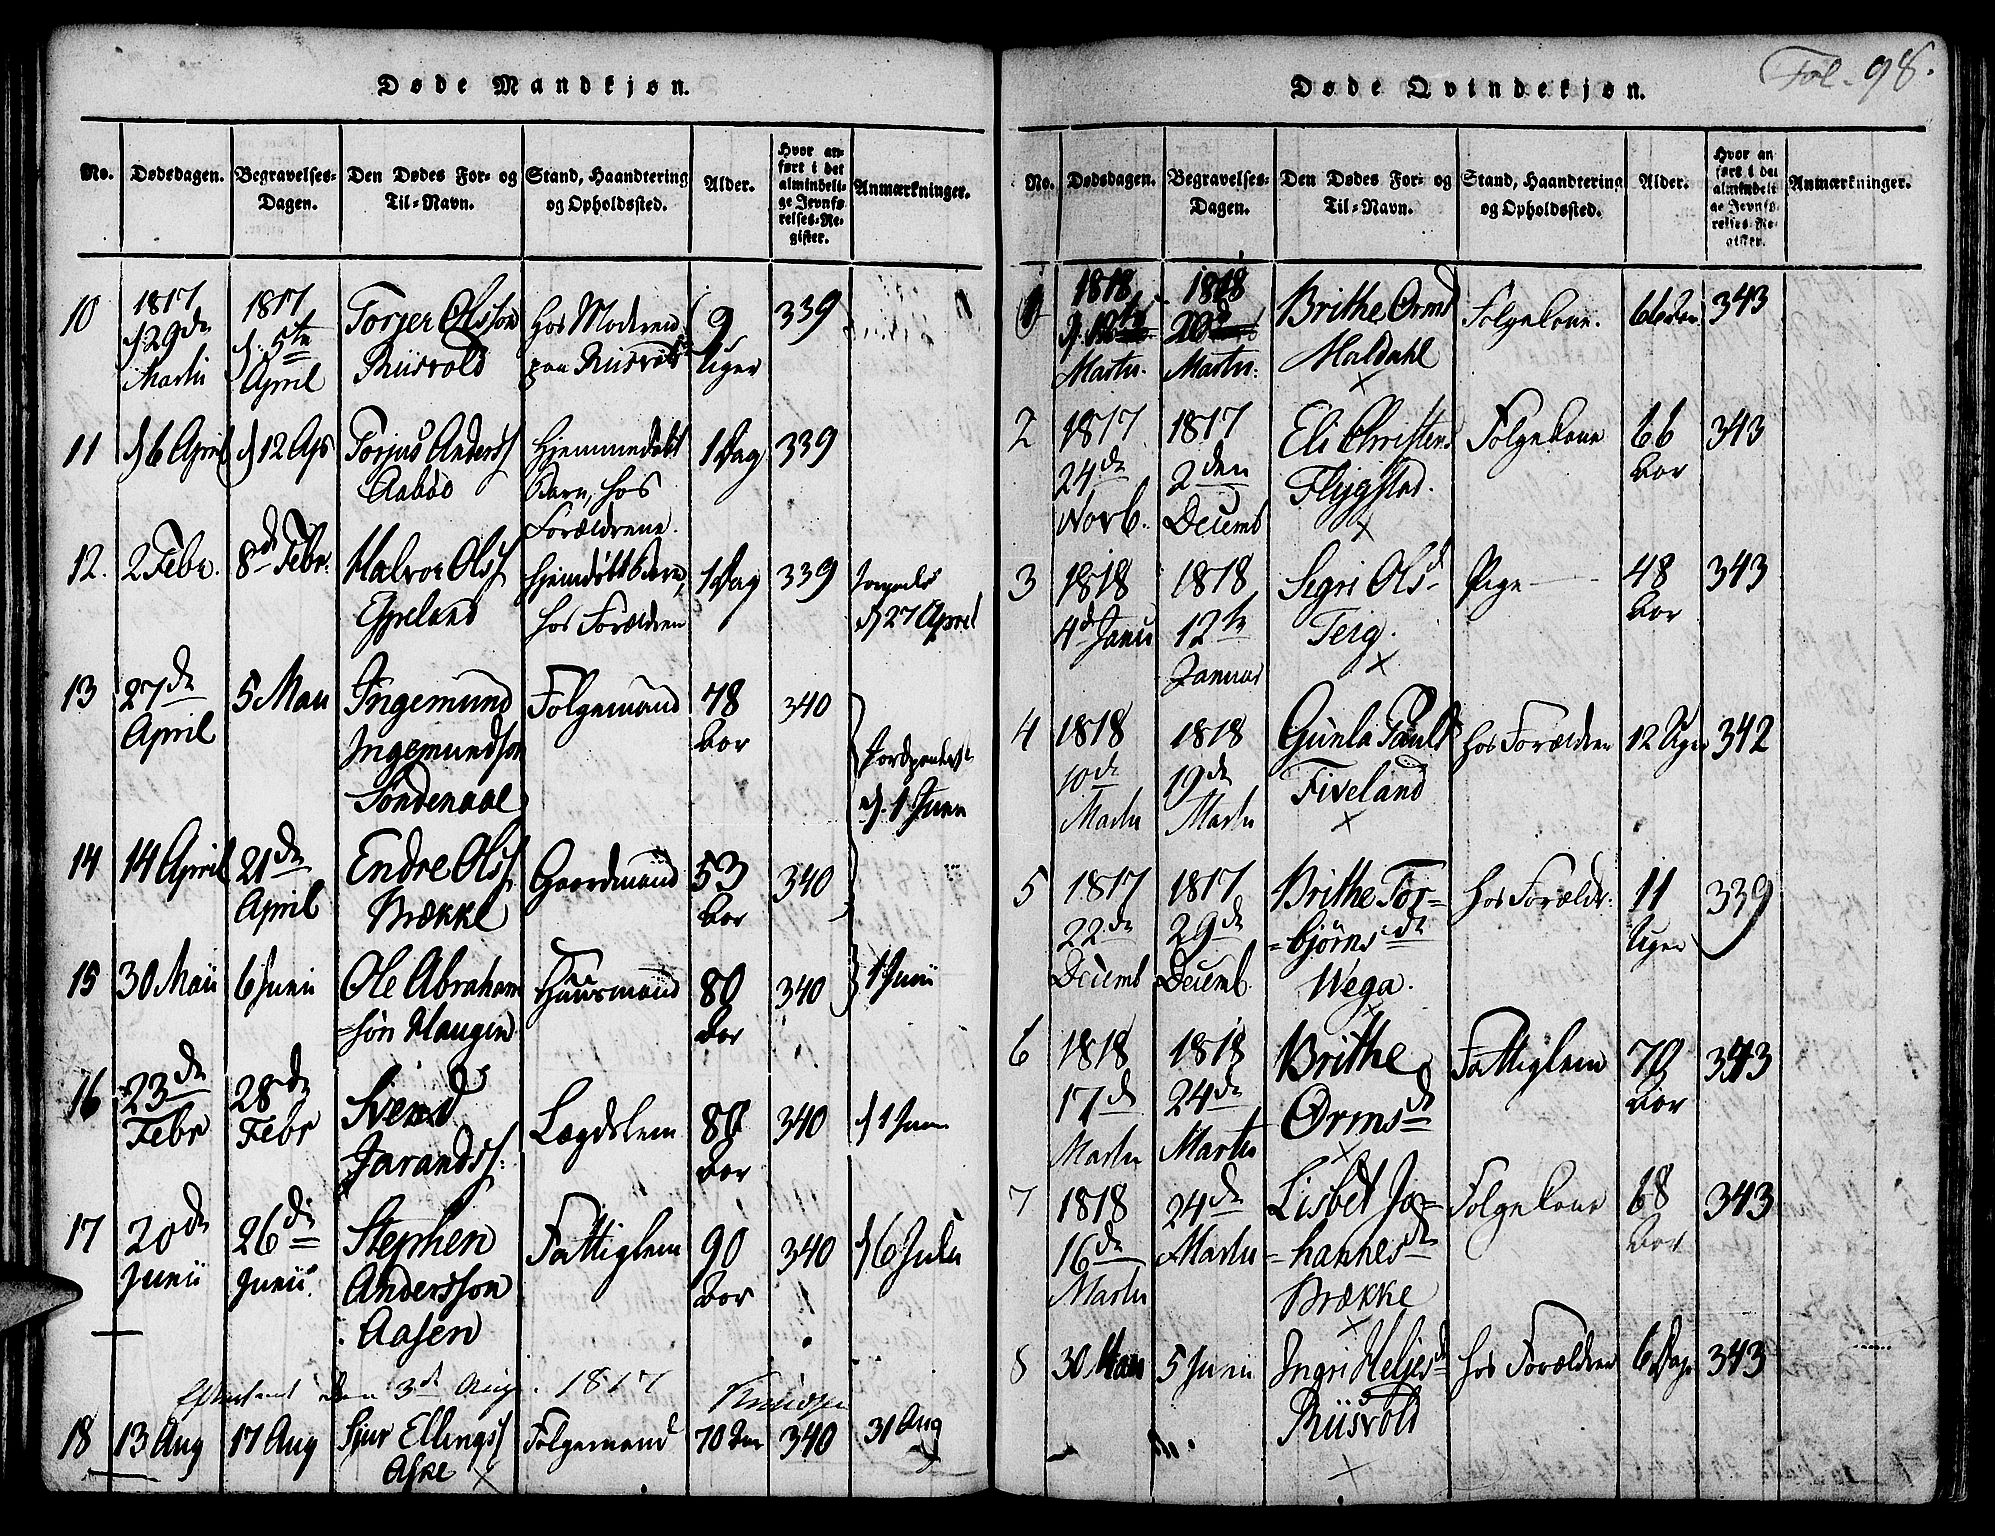 Døde Mandkjøn.
No. Dødsdagen. Begravelses-Dagen. Den Dødes For- og Til-Navn. Stand, Haandtering og Opholdssted. Alder. Hvor anført i det almindelige Jevnførelses-Register. Anmærkninger.
10 1817 d. 29de Martii 1817 d. 5te April Torjer Olsson Riisvold hos Moderen paa Riisvold 9 Uger 339
11 d 6 April d 12 Apr Torjus Anderss Aabøe Hjemmedøbt Barn, hos Forældrene. 1 Dag 339
12. 2 Febr. 8de Febr. Halvor Olss Espeland Hjemdøbt Barn, hos Forældren 1 Dag 339 d 27 April
13 27de April 5 Maii Ingemund Ingemundson Søndenaae Folgemand 78 Aar 340 d. 1 Junii
14 14 April 21de April Endre Olss Brække Gaardmand 53 Aar 340
15 30 Maii 6 Junii Ole Abraham=søn Haugen Huusmand 80 Aar 340 1 Junii
16 23de Febr 28de Febr Svend Jarandss: Lægdslem 80 Aar 340 d 1 Junii
17 20de Junii 26de Junii. Stephen Andersson Aasen Fattiglem 90 Aar 340 d 6 Julii
den 3de Aug. 1817
18 13 Aug 17 Aug Sjur Ellingss Aske Folgemand 70 Aar 340 31 Aug
Fol. 98.
Døde Qvindekjøn.
No. Dødsdagen. Begravelses-Dagen. Den Dødes For- og Til-Navn. Stand, Haandtering og Opholdssted. Alder. Hvor anført i det almindelige Jevnførelses-Register. Anmærkninger.
1 1818 Martii. 1818 Martii. Brithe Orms Maldahl Folgekone. 343
2 1817 24de Novb. 1817 2den Decemb Eli Christens Flygstad. Folgekone 66 Aar 343
3 1818 4de Janu 1818 12te Januar Segri Olsd Terg. Pige 48 Aar 343
4 1818 10de Martii 1818 19de Martii Gunla Pauls Fiveland hos Forældren 12 Uger 342
5 1817 22de Decemb 1817 29de Decemb. Brithe Tor=bjørnsd Wega. hos Forældr: 11 Uger 339
6 1818 17de Martii 1818 24de Martii Brithe Ormsd Fattiglem 70 Aar 343
7 1818 16de Martii 24de Martii Lisbet Jo=hannesd Brække Folgekone 68 Aar 343
8 30 Maii 5 Junii Ingri Heljesd Riisvold hos Forældren 6 Dage 343